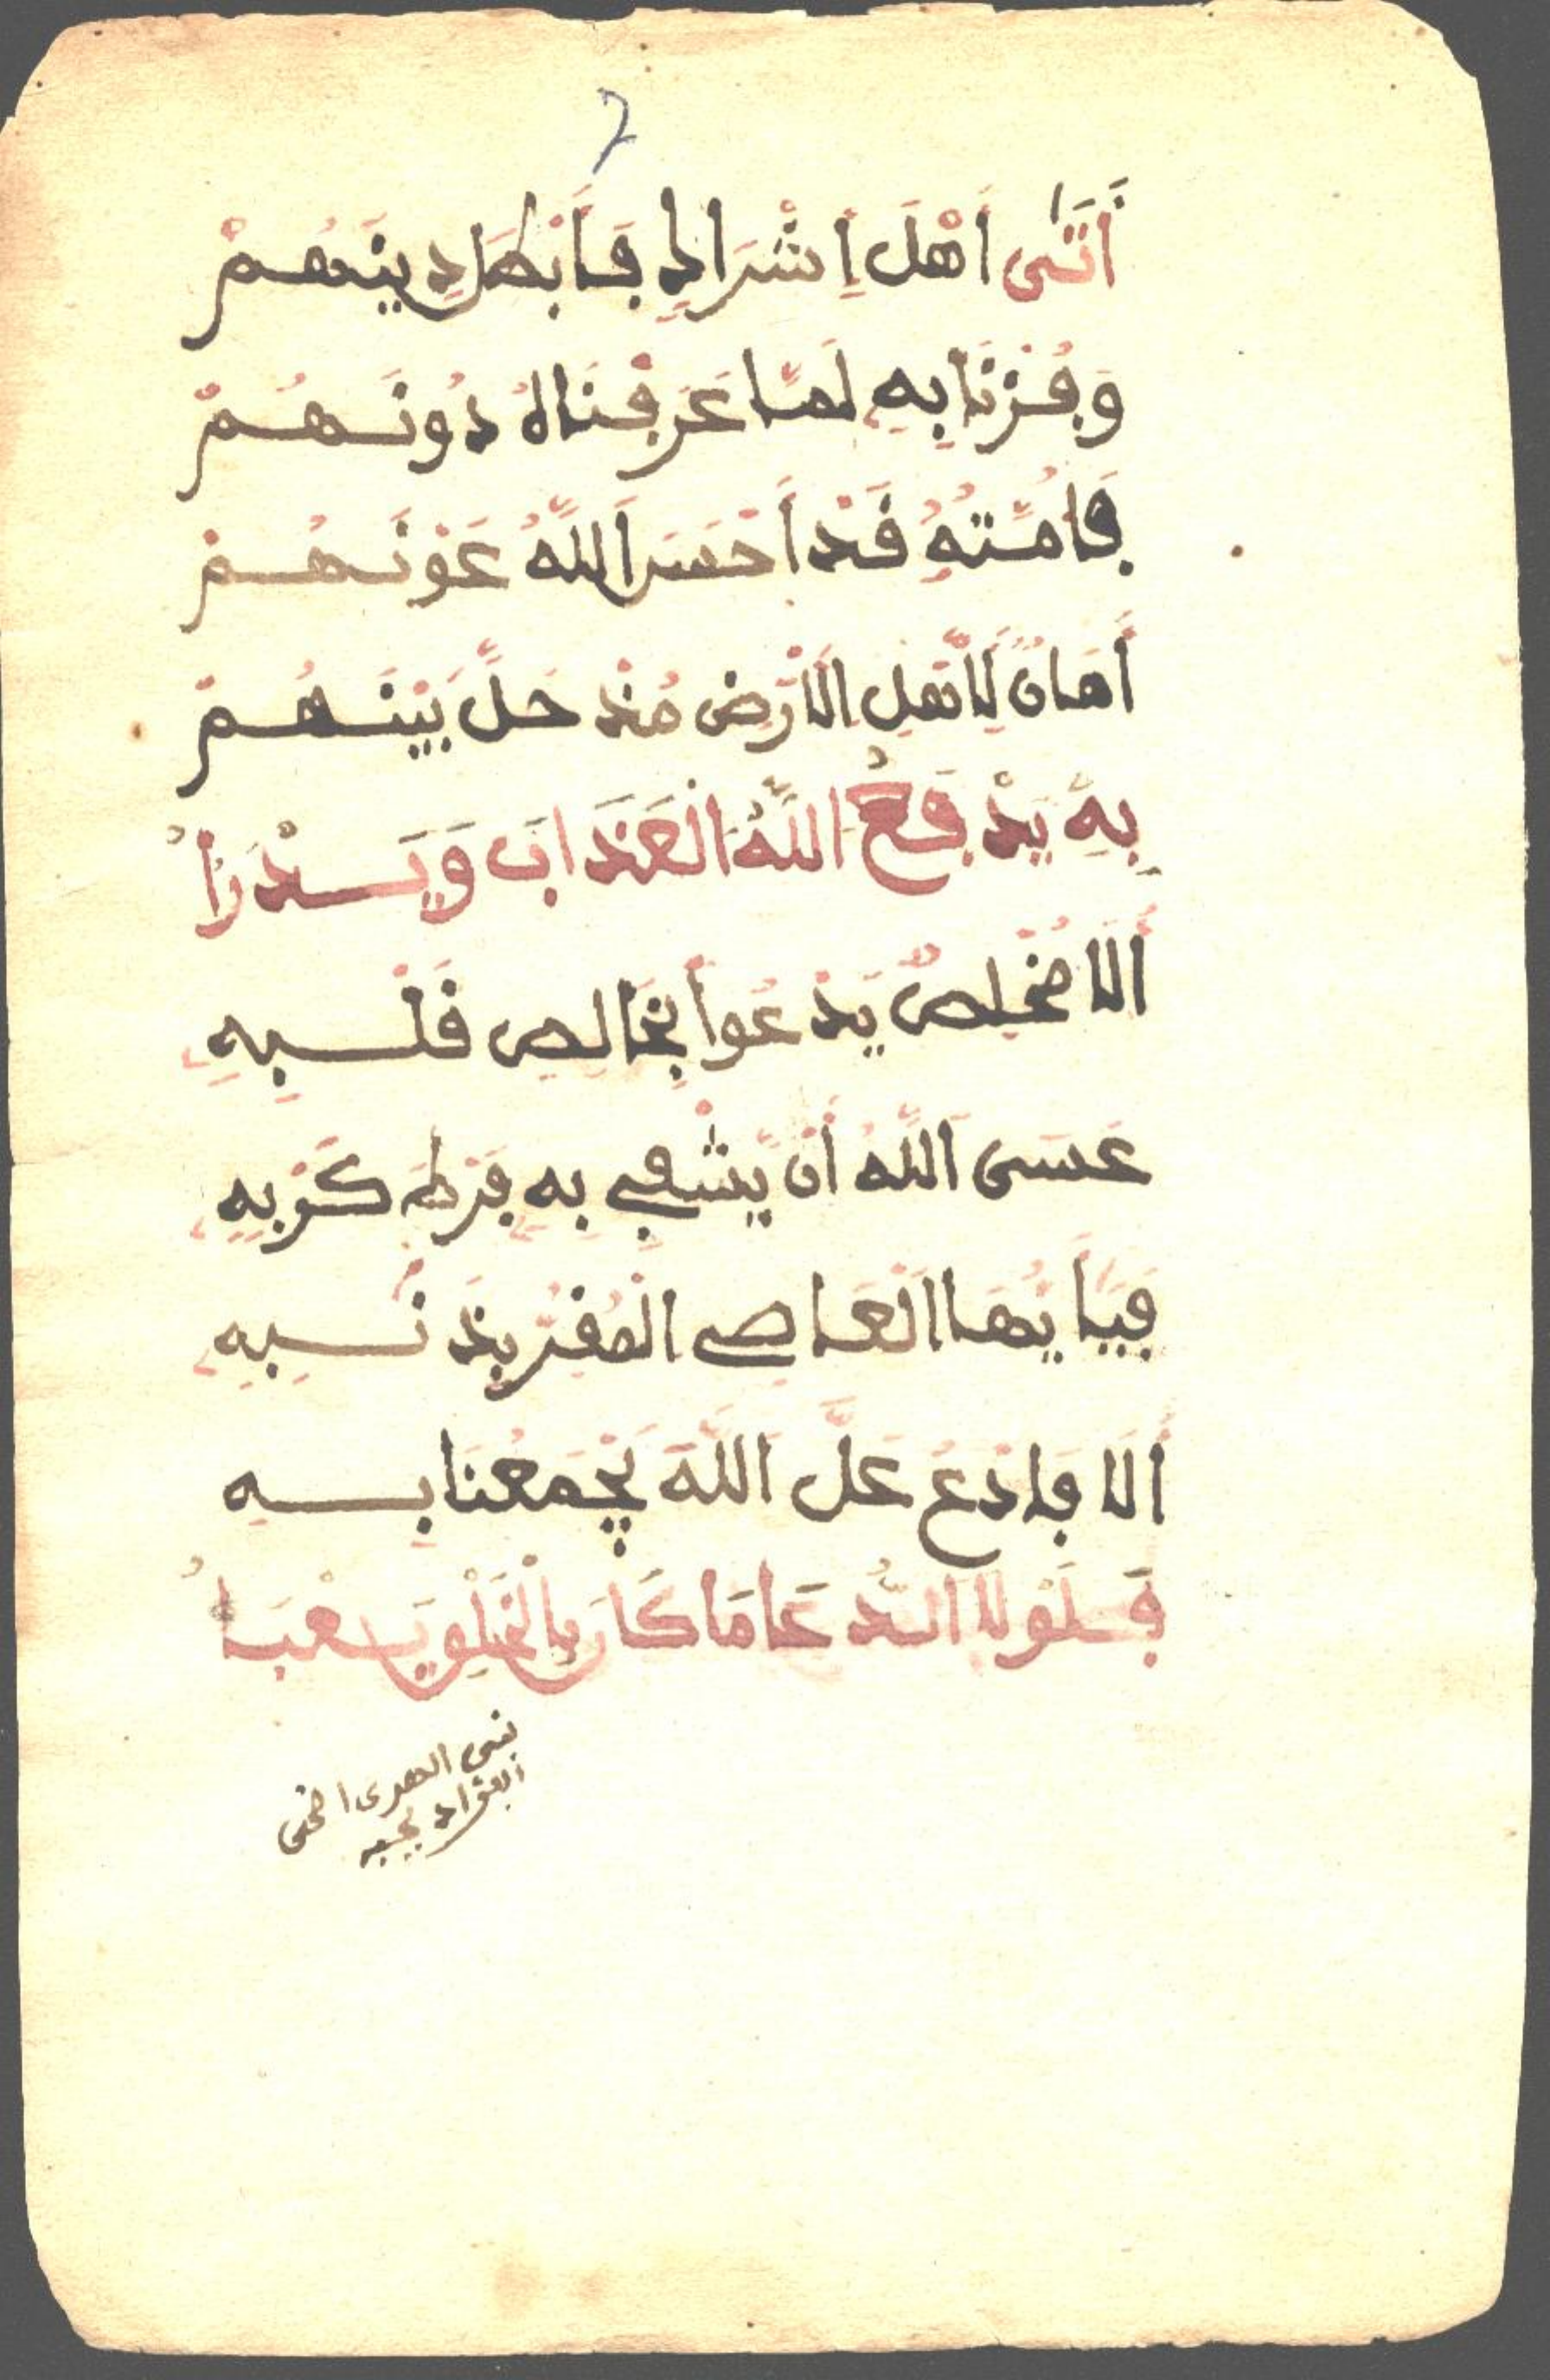 أَتَى أَهْلَ إِشْرَاكٍ فَأَبْطَلَ دِينَهُمْ
وَفُزْنَا بِهِ لَمَّا عَرَفْنَاهُ دُونَهُمْ
فَأُمَّتُهُ قَدْ أَحْسَنَ اللَّهُ عَوْنَهُمْ
أَمَانٌ لِأَهْلِ الْأَرْضِ مُذْ حَلَّ بَيْنَهُمْ
بِهِ يَدْفَعُ اللَّهُ الْعَذَابَ وَيَدْرَأُ
أَلَا مُخْلِصٌ يَدْعُوا بِخَالِصِ قَلْبِهِ
عَسَى اللَّهُ أَنْ يَشْفِي بِهِ فَرْطَ كَرْبِهِ
فَيَا أَيُّهَا الْعَاصِي الْمُقِرُّ بِذَنْبِهِ
أَلَا فَادْعُ عَلَّ اللَّهَ يَجْمَعُنَا بِهِ
فَلَوْلَا الدُّعَا مَا كَانَ بِالْخَلْقِ يَعْبَأُ